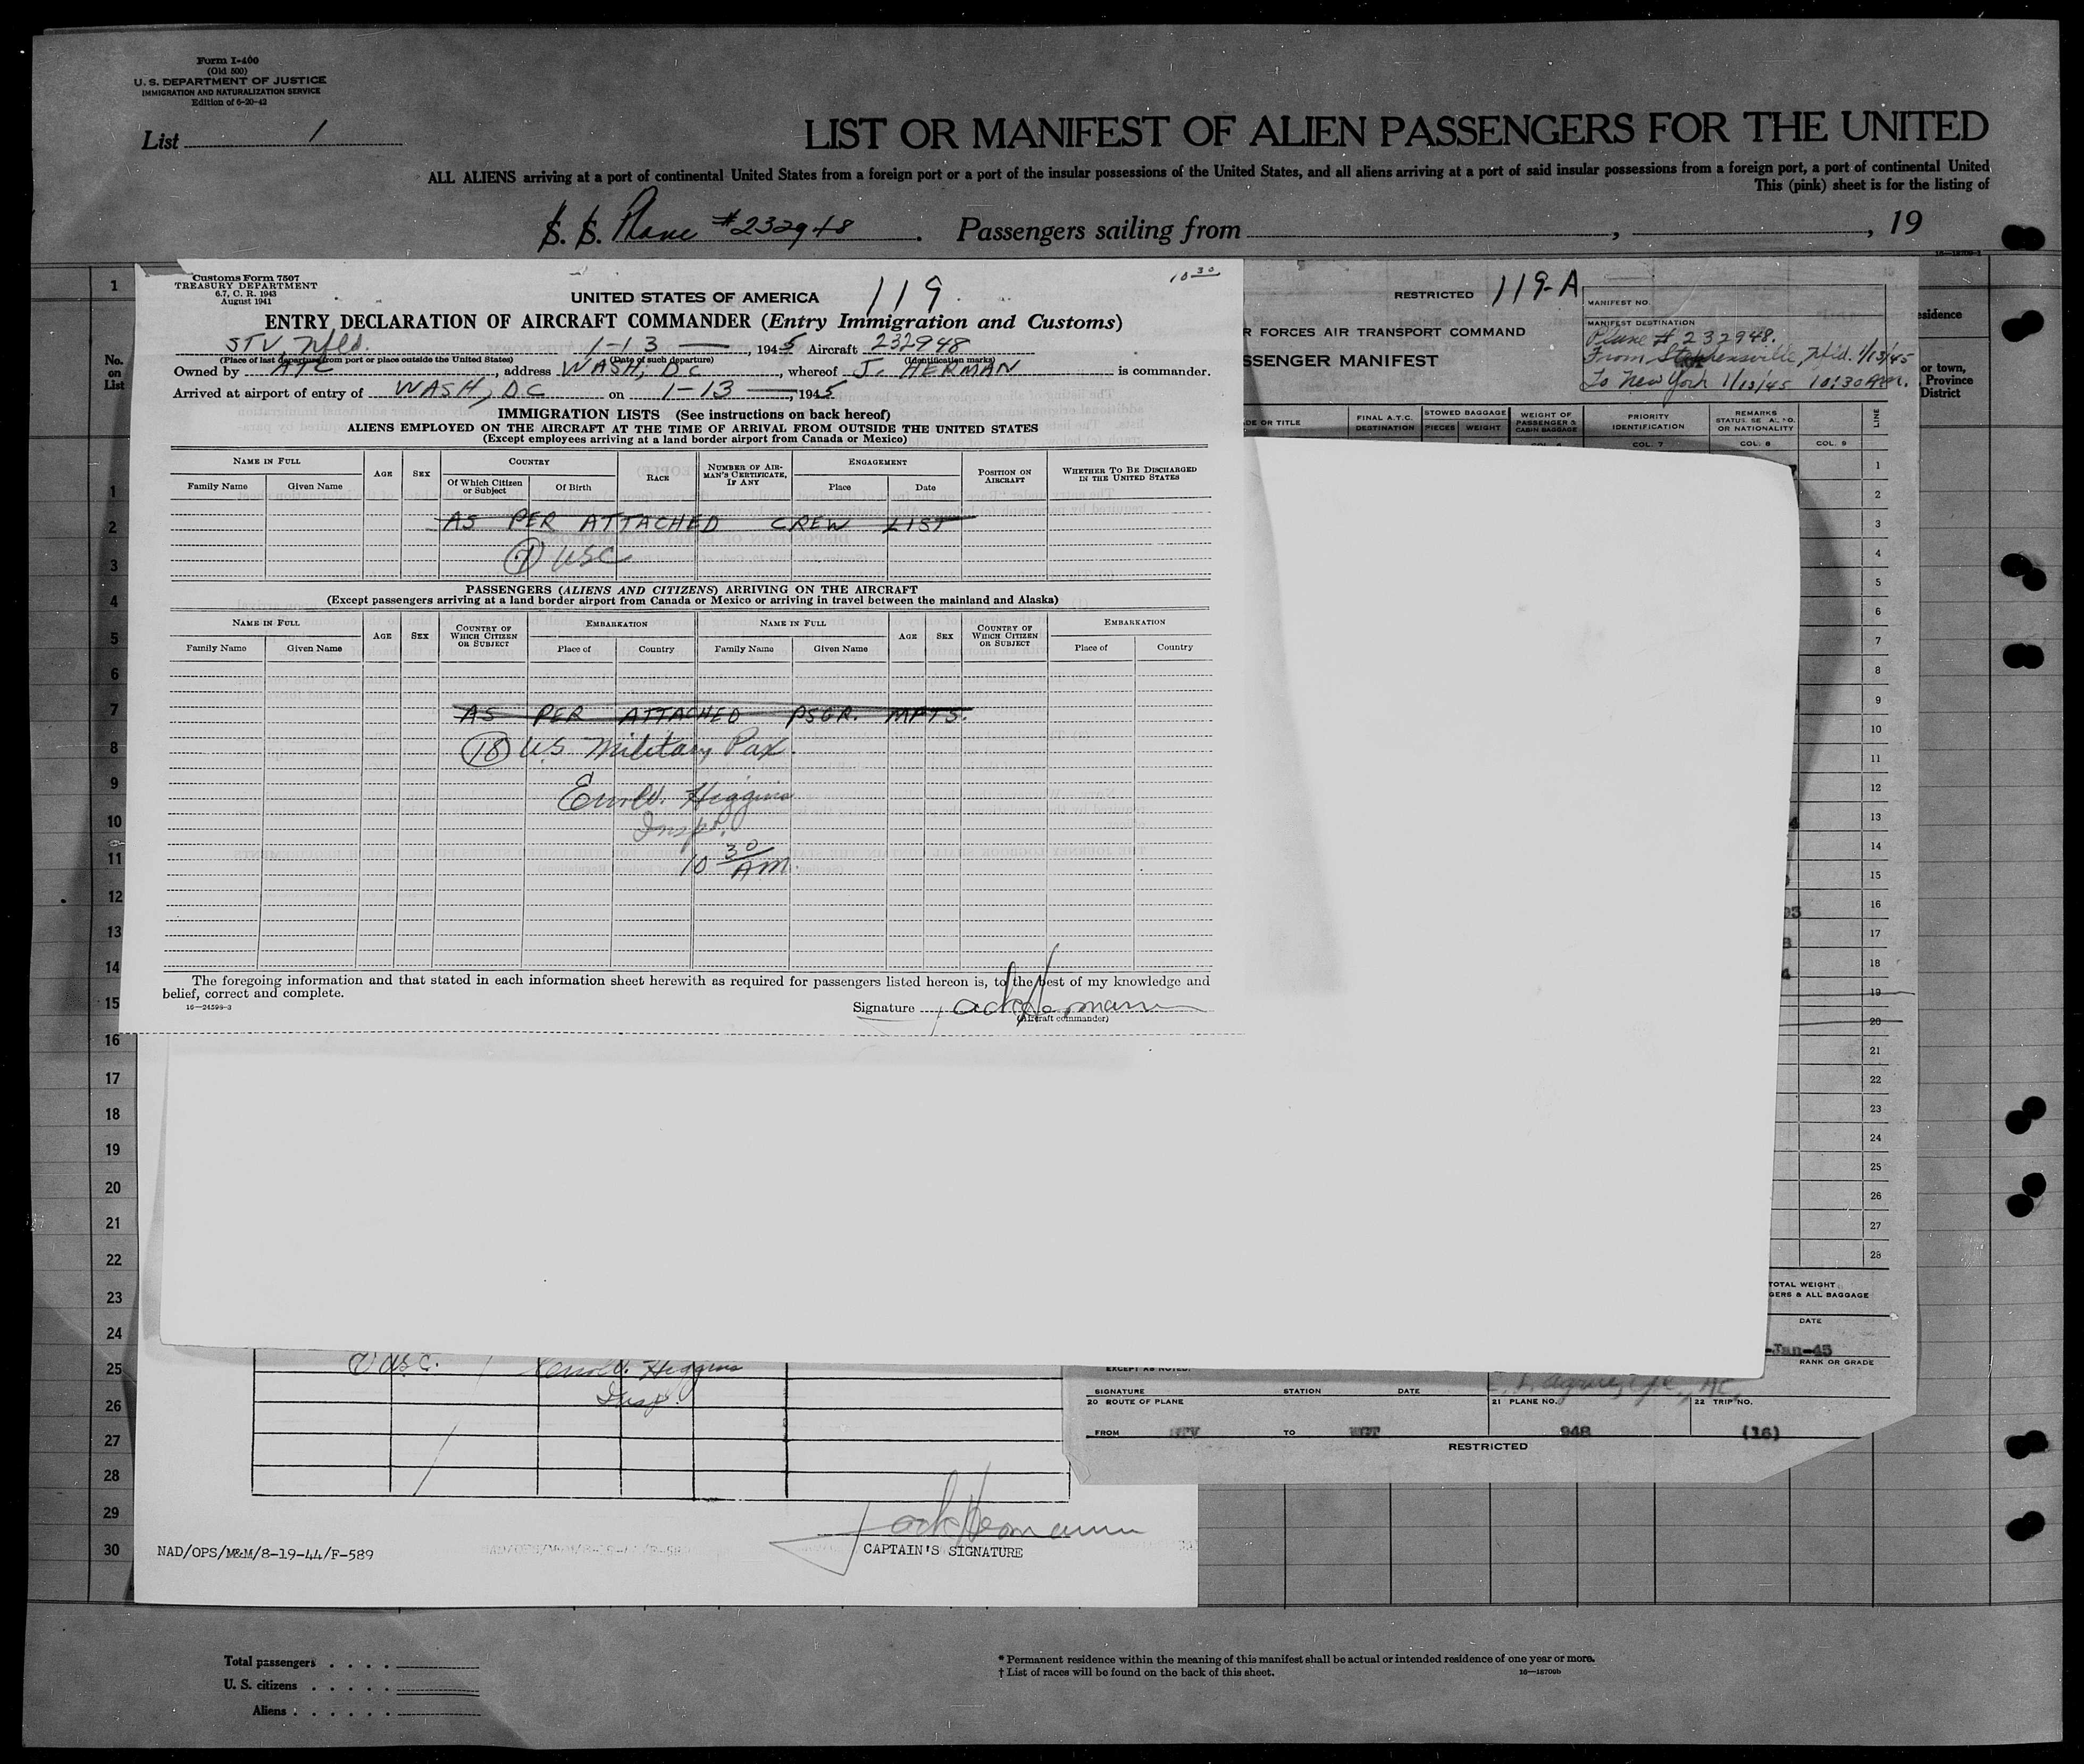 Form I-400
(Old 500)
U. S. DEPARTMENT OF JUSTICE
IMMIGRATION AND NATURALIZATION SERVICE
Edition of 6-20-42
List 1
LIST OR MANIFEST OF ALIEN PASSENGERS FOR THE UNITED
ALL ALIENS arriving at a port of continental United States from a foreign port or a port of the insular possessions of the United States, and all aliens arriving at a port of said insular possessions from a foreign port, a port of continental United
This (pink) sheet is for the listing of
S. S. Plane #232948. Passengers sailing from , , 19
Customs Form 7507
TREASURY DEPARTMENT
6.7, C. R. 1943
August 1941
UNITED STATES OF AMERICA
119
10 30
ENTRY DECLARATION OF AIRCRAFT COMMANDER (Entry Immigration and Customs)
STV, Nfld. 1-13 , 1945 Aircraft 232948
(Place of last departure from port or place outside the United States) (Date of such departure) (Identification marks)
Owned by ATC , address WASH, DC , whereof J. HERMAN is commander.
Arrived at airport of entry of WASH, DC on 1-13 , 1945
IMMIGRATION LISTS (See instructions on back hereof)
ALIENS EMPLOYED ON THE AIRCRAFT AT THE TIME OF ARRIVAL FROM OUTSIDE THE UNITED STATES
(Except employees arriving at a land border airport from Canada or Mexico)
NAME IN FULL AGE SEX COUNTRY RACE NUMBER OF AIRMAN'S CERTIFICATE, IF ANY ENGAGEMENT POSITION ON AIRCRAFT WHETHER TO BE DISCHARGED IN THE UNITED STATES
Family Name Given Name Of Which Citizen or Subject Of Birth Place Date
AS PER ATTACHED CREW LIST
USC
PASSENGERS (ALIENS AND CITIZENS) ARRIVING ON THE AIRCRAFT
(Except passengers arriving at a land border airport from Canada or Mexico or arriving in travel between the mainland and Alaska)
NAME IN FULL AGE SEX COUNTRY OF WHICH CITIZEN OR SUBJECT EMBARKATION NAME IN FULL AGE SEX COUNTRY OF WHICH CITIZEN OR SUBJECT EMBARKATION
Family Name Given Name Place of Country Family Name Given Name Place of Country
AS PER ATTACHED PSGR. MFTS.
18 US Military Pax.
Higgins
Insp.
10 30 AM.
The foregoing information and that stated in each information sheet herewith as required for passengers listed hereon is, to the best of my knowledge and
belief, correct and complete.
16—24598-3
Signature Jack Hermann
(Aircraft commander)
RESTRICTED 119-A
R FORCES AIR TRANSPORT COMMAND
SSENGER MANIFEST
MANIFEST NO.
MANIFEST DESTINATION
Plane # 232948.
From Stephensville, Nfld. 1/13/45
To New York 1/13/45 10:30 AM.
DE OR TITLE FINAL A.T.C. DESTINATION STOWED BAGGAGE PIECES WEIGHT WEIGHT OF PASSENGER & CABIN BAGGAGE PRIORITY IDENTIFICATION REMARKS STATUS, SERIAL NO. OR NATIONALITY LINE
COL. 7 COL. 8 COL. 9
1
2
3
4
5
6
7
8
9
10
11
12
13
14
15
16
17
18
19
20
21
22
23
24
25
26
27
28
esidence
or town,
Province
District
TOTAL WEIGHT
GERS & ALL BAGGAGE
DATE
-Jan-45
RANK OR GRADE
EXCEPT AS NOTED.
SIGNATURE STATION DATE
20 ROUTE OF PLANE 21 PLANE NO. 22 TRIP NO.
FROM STV TO WGT 948 (16)
RESTRICTED
No. on List
1
1
2
3
4
5
6
7
8
9
10
11
12
13
14
15
16
17
18
19
20
21
22
23
24
25
26
27
28
29
30
USC. Higgins
Insp.
Jack Hermann
CAPTAIN'S SIGNATURE
NAD/OPS/M&M/8-19-44/F-589
Total passengers
U. S. citizens
Aliens
* Permanent residence within the meaning of this manifest shall be actual or intended residence of one year or more.
† List of races will be found on the back of this sheet. 16—18709b